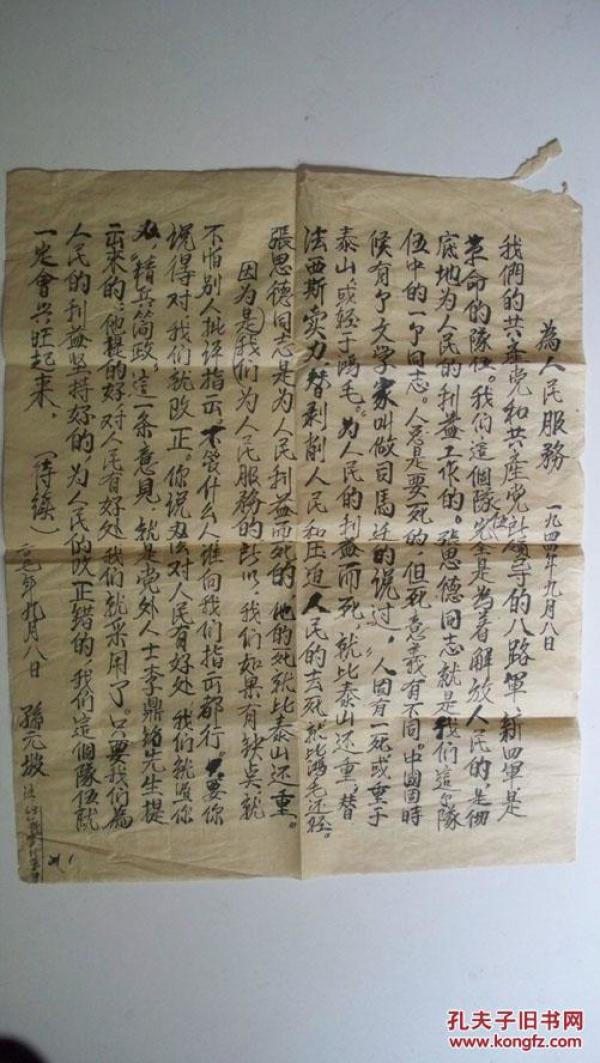 為人民服務
一九四四年九月八日
我們的共產党和共產党所領导的八路軍、新四軍、是
革命的隊伍。我们這個隊伍完全是為着解放人民的,是彻
底地为人民的利益工作的。張思德同志就是我们這個隊
伍中的一个同志。人总是要死的,但死意義有不同。中國固時
候有个文学家叫做司馬迁的说过,人固有一死或重于
泰山,或轻于鴻毛。为人民的利益而死,就比泰山还重,替
法西斯实力替剥削人民和压迫人民的去死就比鴻毛还轻。
張思德同志是为人民利益而死的,他的死就比泰山还重。
因为是我们为人民服務的所以,我们如果有缺点就
不怕别人批评指出,不管什么人谁向我们指出都行。只要你
说得对我们就改正。你说 办法对人民有好处 我们就照你
办,"精兵简政"這一条意見,就是党外人士李鼎铭先生提
出来的;他提的好对人民有好处我们就采用了。只要我们為
人民的利益坚持好的,为人民的改正错的,我们這個隊伍就
一定會兴旺起来。 (待续)
九月八日 孫元
孔夫子旧书网
www.kongfz.com